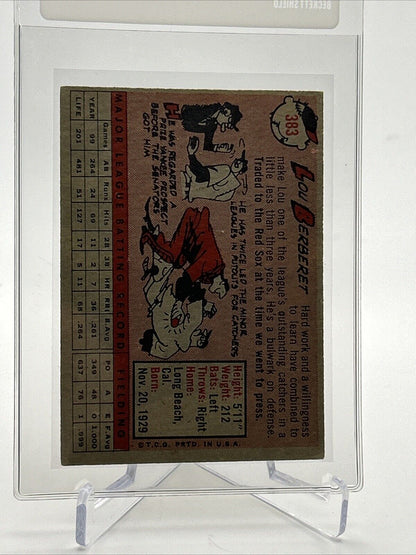 BECKETT SHIELD
383
LOU BERBERET
Hard work and a willingness
to learn have combined to
make Lou one of the league's outstanding catchers in a
little less than three years. He's a bulwark on defense.
Traded to the Red Sox at the time we went to press.
HE WAS REGARDED A
PRIZE YANKEE PROSPECT
BEFORE THE SENATORS
GOT HIM
HE HAS TWICE LED THE MINOR
LEAGUES IN PUTOUTS FOR CATCHERS
Height: 5'11"
Weight: 212
Bats: Left
Throws: Right
Home:
Long Beach,
Cal.
Born:
Nov. 20, 1929
© T.C.G. PRTD. IN U.S.A.
MAJOR LEAGUE BATTING RECORD FIELDING
Games AB Runs Hits 2B 3B HR RBI B.Avg. PO A E F.Avg
YEAR 99 264 24 69 11 2 7 36 .261 349 48 0 1.000
LIFE 201 481 51 127 17 5 11 68 .264 637 76 1 .999